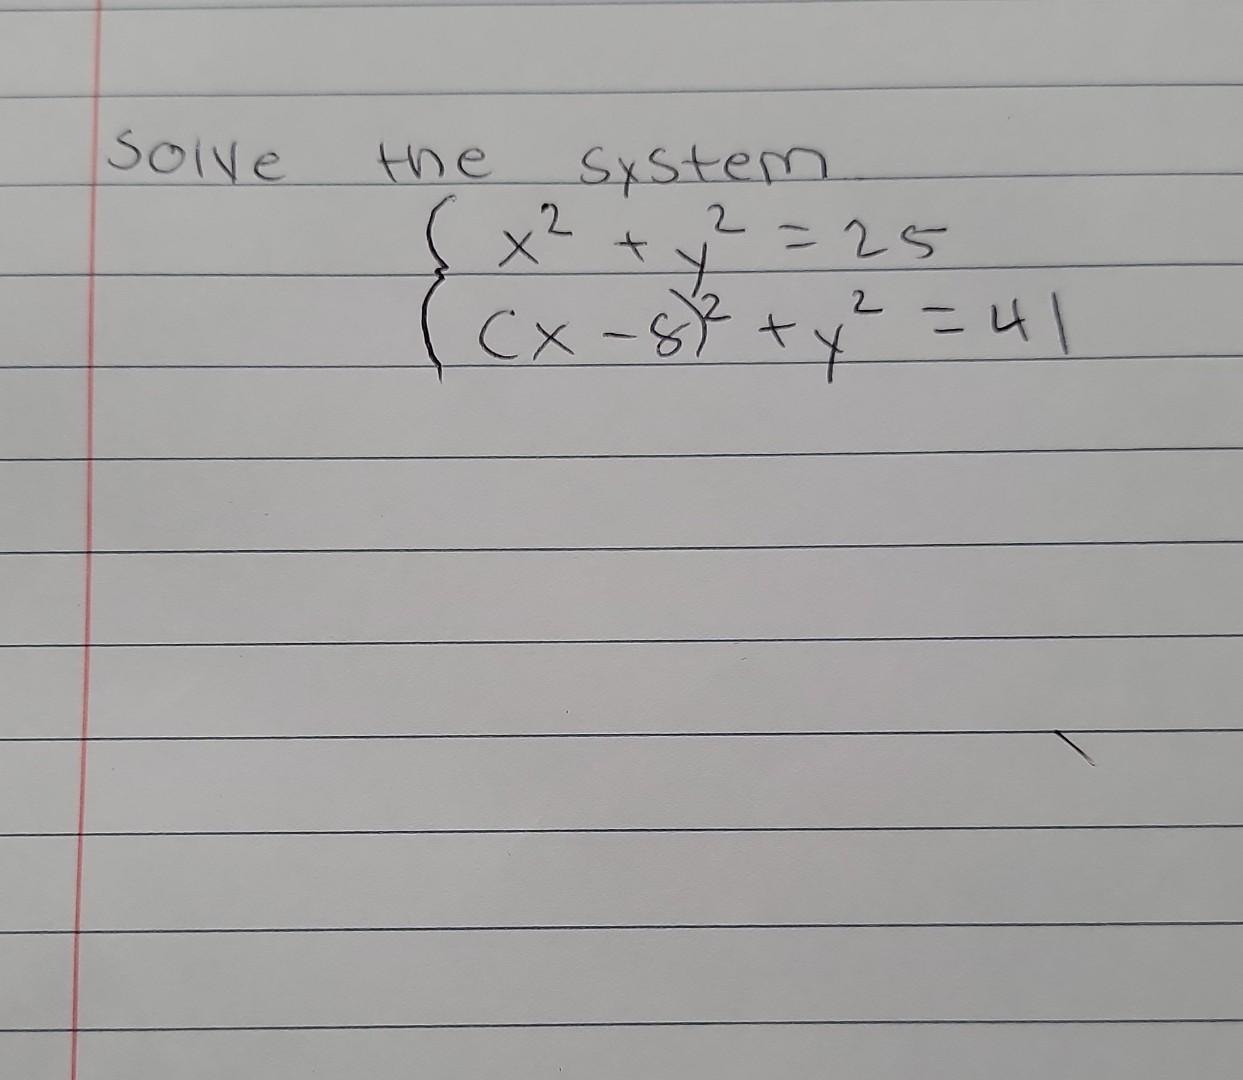 Solve the system
{ x² + y² = 25
(x - 8)² + y² = 41